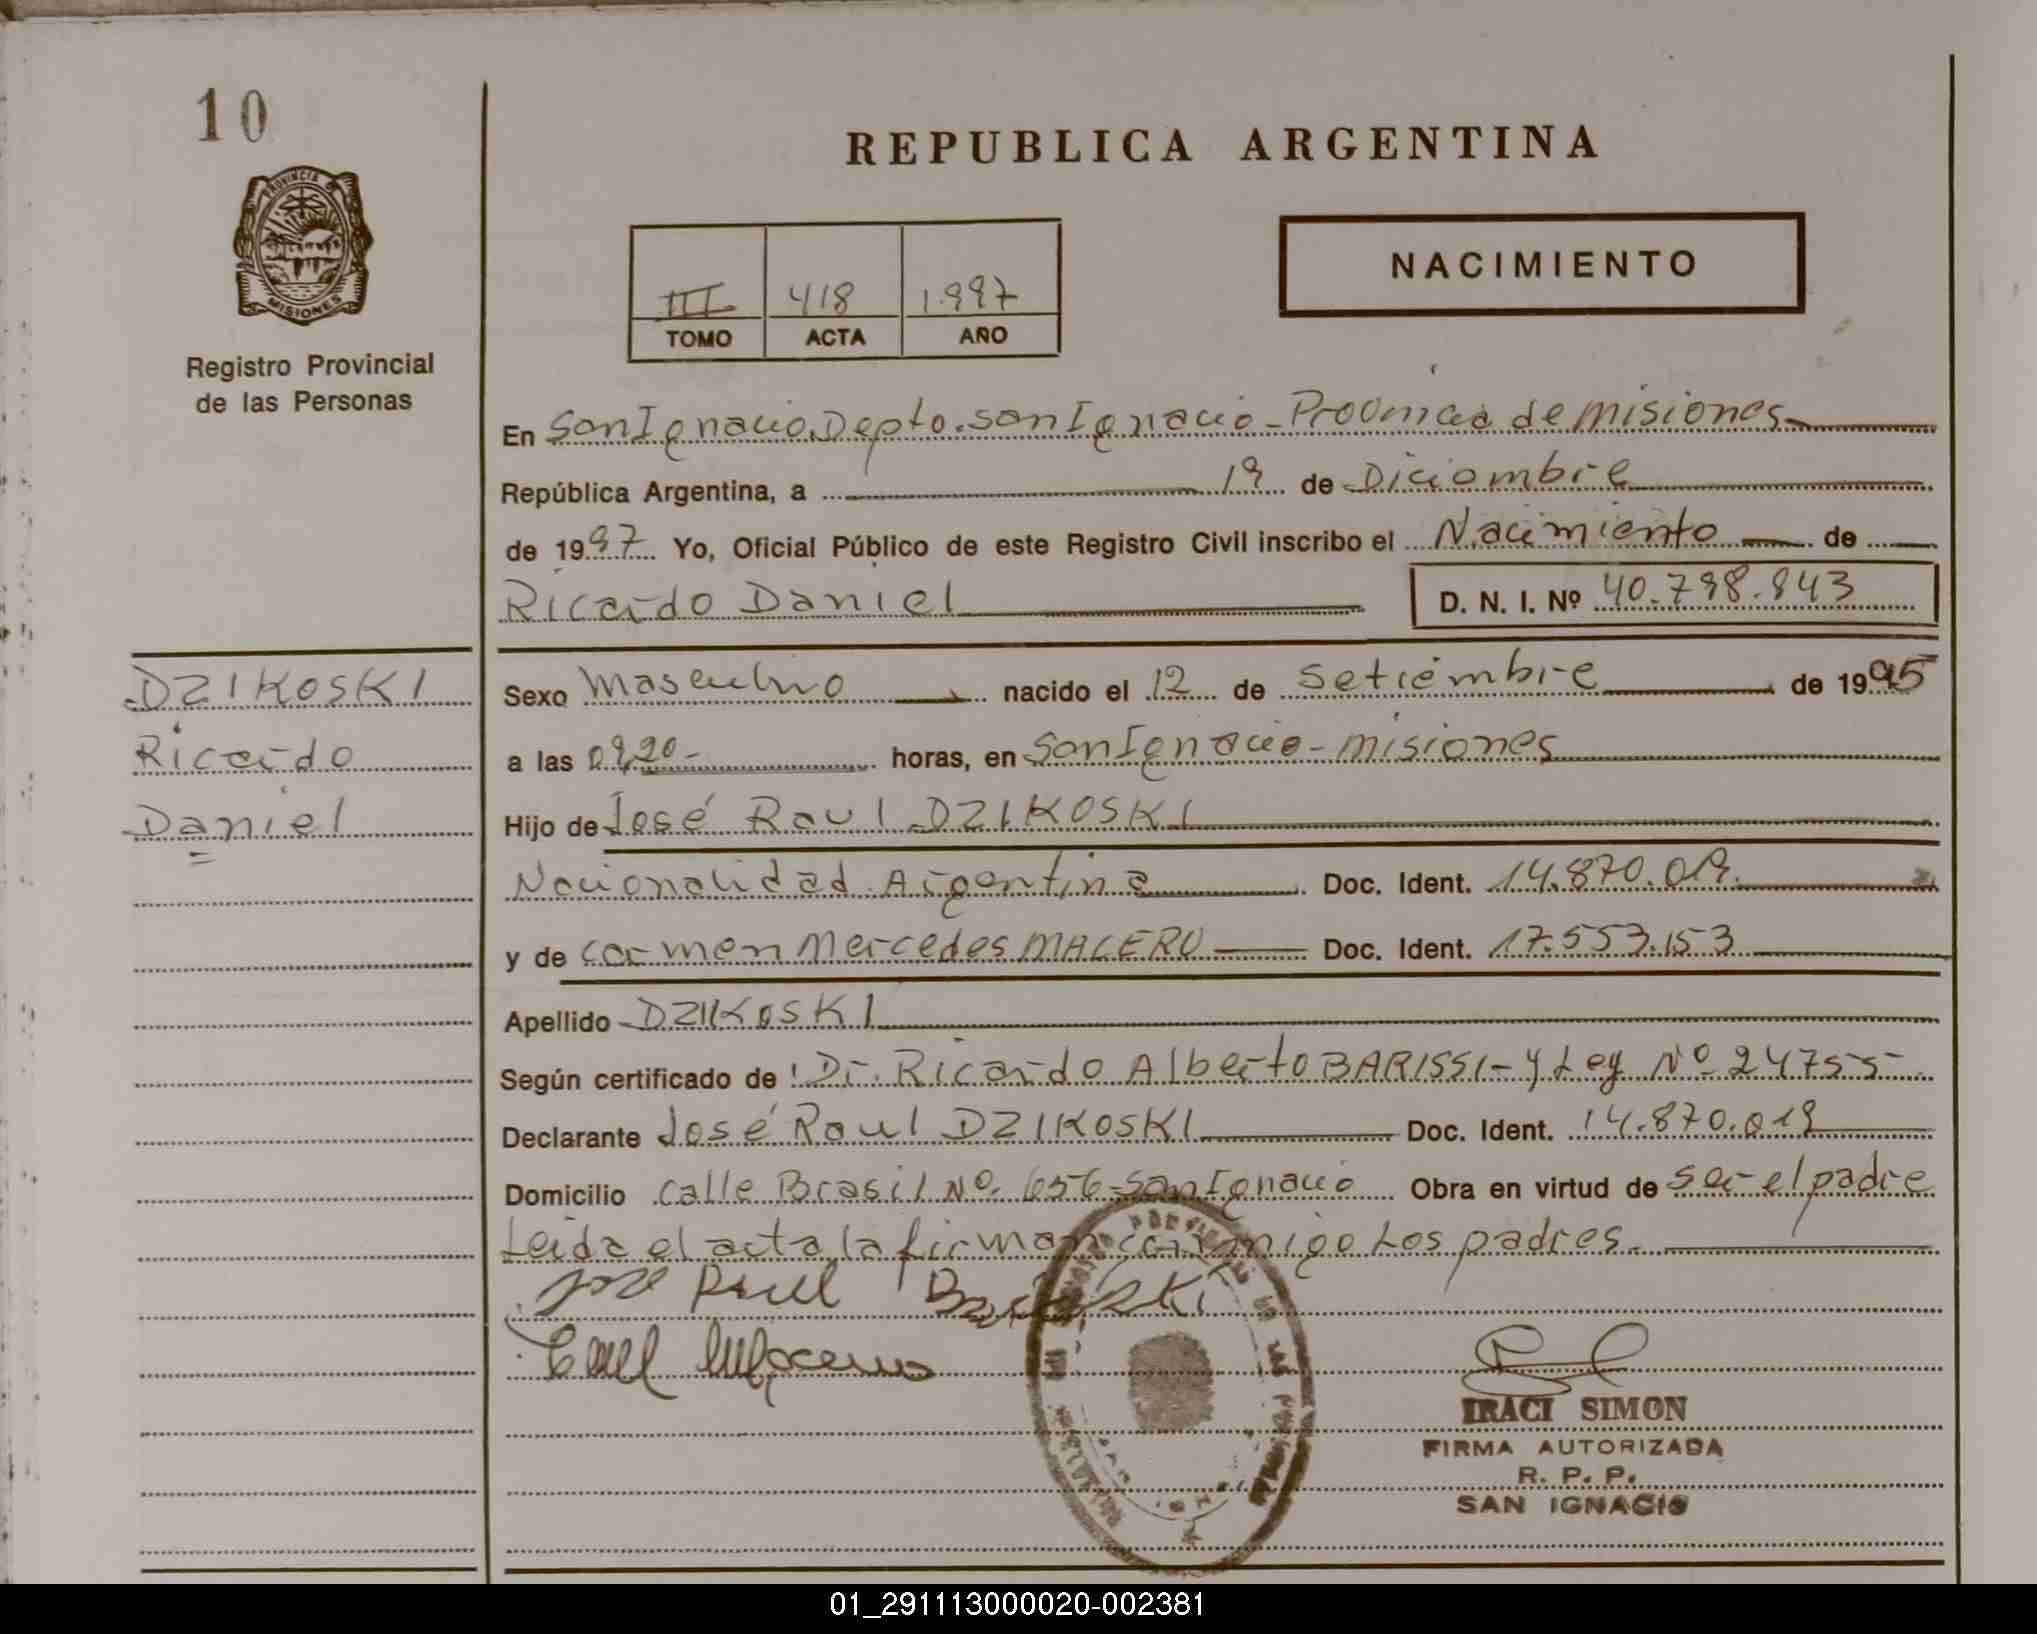 10
REPUBLICA ARGENTINA
PROVINCIA DE
MISIONES
Registro Provincial
de las Personas
III 418 1.997
TOMO ACTA AÑO
NACIMIENTO
En San Ignacio, Depto. San Ignacio - Provincia de misiones
República Argentina, a 19 de Diciembre
de 1997 Yo, Oficial Público de este Registro Civil inscribo el Nacimiento de
Ricardo Daniel D. N. I. Nº 40.798.843
DZIKOSKI
Ricardo
Daniel
Sexo Masculino nacido el 12 de Setiembre de 1995
a las 09,20- horas, en San Ignacio - misiones
Hijo de José Raul DZIKOSKI
Nacionalidad Argentina Doc. Ident. 14.870.019.
y de Carmen Mercedes MACERO Doc. Ident. 17.553.153
Apellido DZIKOSKI
Según certificado de Dr. Ricardo Alberto BARISSI - y Ley Nº 24755-
Declarante José Raul DZIKOSKI Doc. Ident. 14.870.019
Domicilio calle Brasil Nº. 656 - San Ignacio Obra en virtud de ser el padre
Leida el acta la firman conmigo Los padres.
IRACI SIMON
FIRMA AUTORIZADA
R. P. P.
SAN IGNACIO
01_291113000020-002381